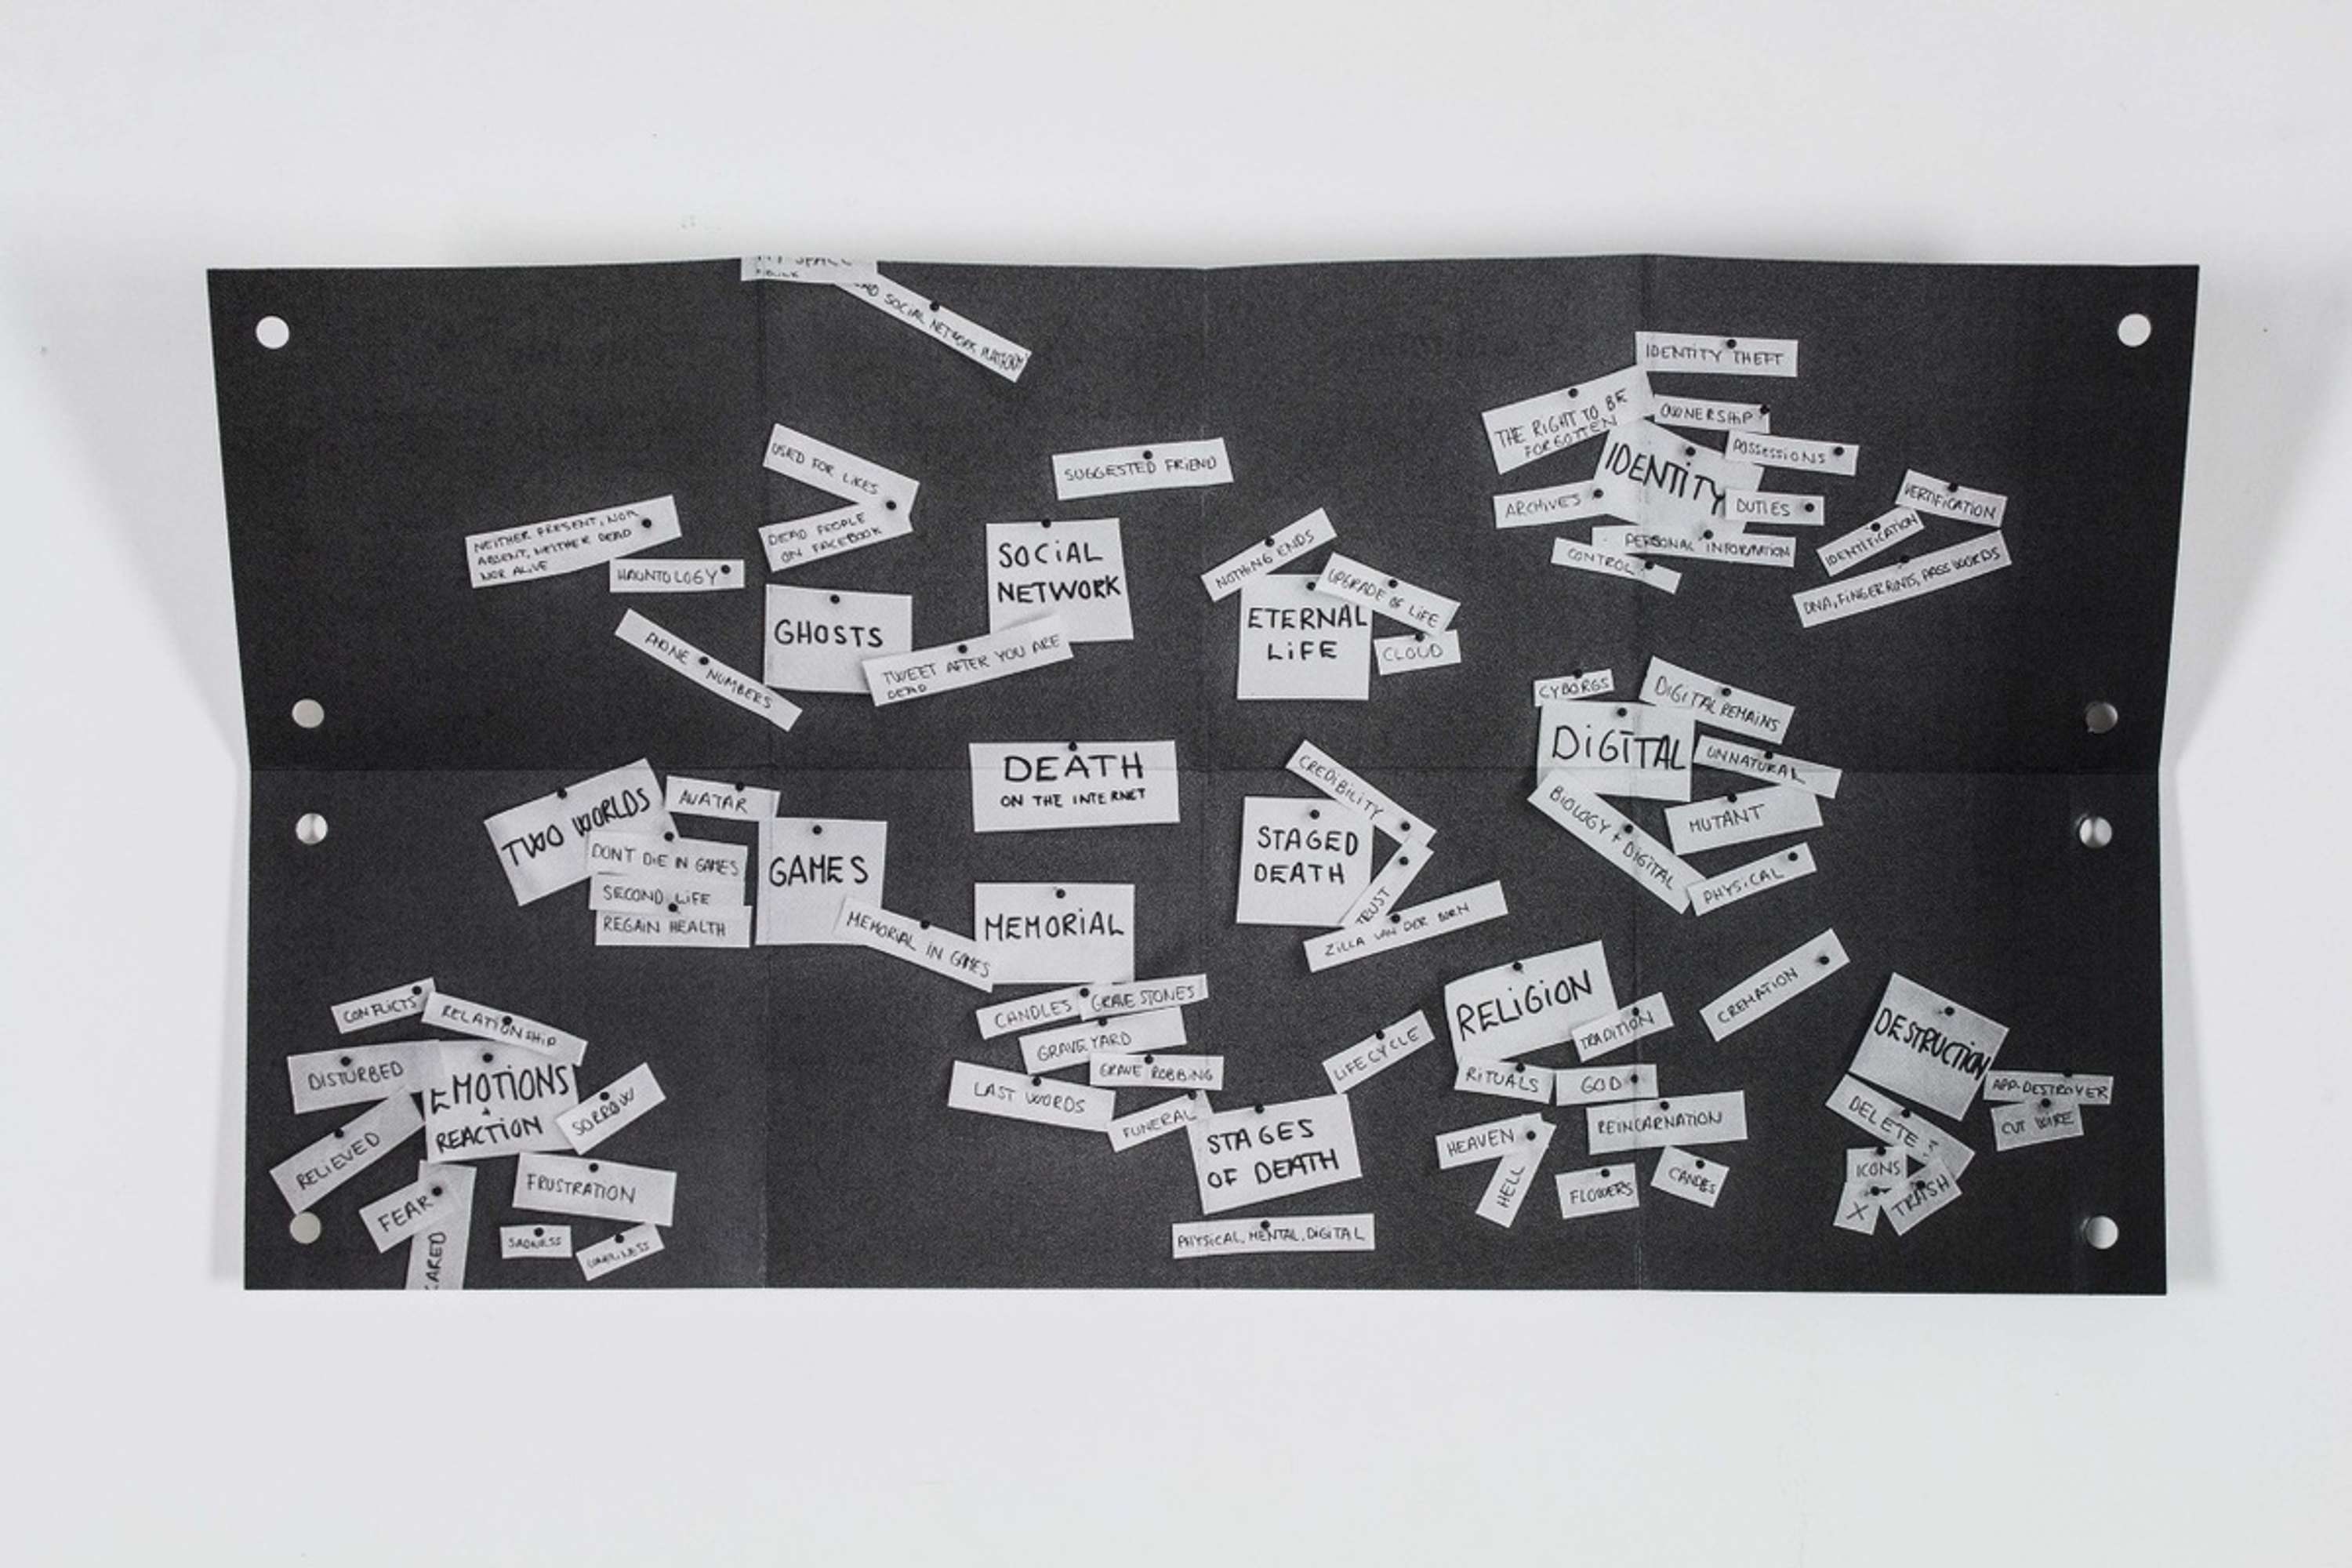 SPACE
SOCIAL NETWORK PLATFORM
USED FOR LIKES
DEAD PEOPLE
ON FACEBOOK
SUGGESTED FRIEND
NEITHER PRESENT, NOR
ABSENT, NEITHER DEAD
NOR ALIVE
HAUNTOLOGY
SOCIAL
NETWORK
GHOSTS
TWEET AFTER YOU ARE
DEAD
PHONE NUMBERS
NOTHING ENDS
UPGRADE OF LIFE
ETERNAL
LIFE
CLOUD
IDENTITY THEFT
THE RIGHT TO BE
FORGOTTEN
OWNERSHIP
POSSESSIONS
IDENTITY
ARCHIVES
DUTIES
PERSONAL INFORMATION
CONTROL
VERTIFICATION
IDENTITICATION
DNA, FINGERPRINTS, PASSWORDS
CYBORGS
DIGITAL REMAINS
DIGITAL
UNNATURAL
BIOLOGY + DIGITAL
MUTANT
PHYSICAL
DEATH
ON THE INTERNET
TWO WORLDS
AVATAR
DON'T DIE IN GAMES
SECOND LIFE
REGAIN HEALTH
GAMES
MEMORIAL IN GAMES
MEMORIAL
CREDIBILITY
STAGED
DEATH
TRUST
ZILLA VAN DER BORN
CANDLES
GRAVE STONES
GRAVEYARD
GRAVE ROBBING
LAST WORDS
FUNERAL
STAGES
OF DEATH
PHYSICAL, MENTAL, DIGITAL
LIFE CYCLE
RELIGION
TRADITION
CREMATION
RITUALS
GOD
REINCARNATION
HEAVEN
HELL
FLOWERS
CANDLES
DESTRUCTION
APP-DESTROYER
CUT WIRE
DELETE
ICONS
X
TRASH
CONFLICTS
RELATIONSHIP
DISTURBED
EMOTIONS
+
REACTION
SORROW
RELIEVED
FEAR
FRUSTRATION
SADNESS